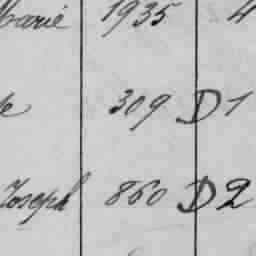 Marie 1935 4
309 D1
Joseph 860 D2